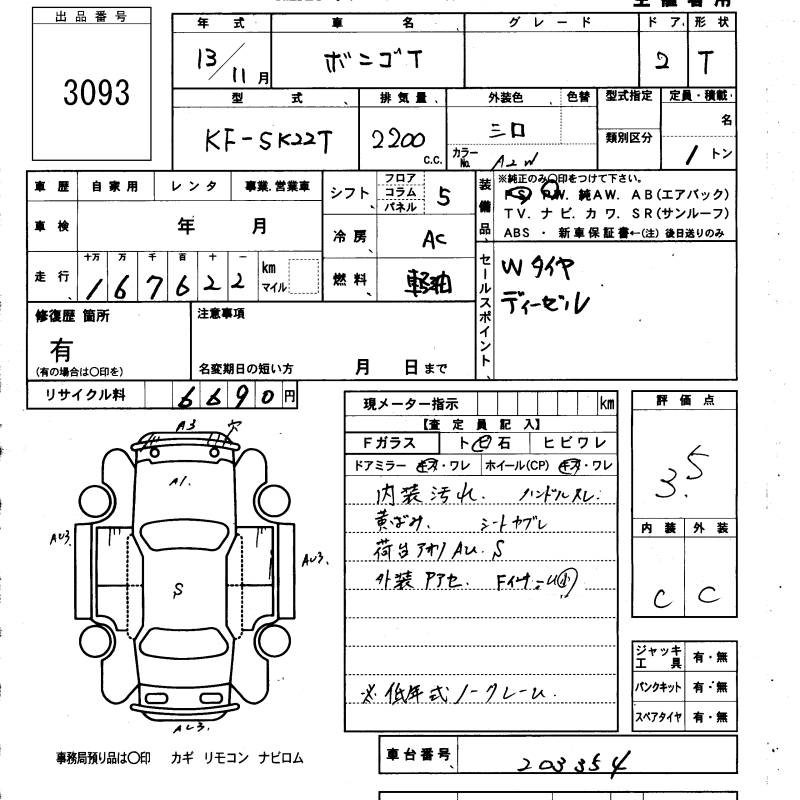 出品番号
3093
年式 車名 グレード ドア 形状
13/11月 ボンゴT 2 T
型式 排気量 外装色 色替 型式指定 定員・積載
KF-SK22T 2200 c.c. シロ 類別区分 名
カラーNo. A2W 1トン
車歴 自家用 レンタ 事業.営業車
シフト フロア コラム パネル 5
装備品
※純正のみ〇印をつけて下さい。
PS. PW. 純AW. AB(エアバック)
TV. ナビ. カワ. SR(サンルーフ)
ABS ・ 新車保証書←(注) 後日送りのみ
車検 年 月
冷房 AC
走行 十万 万 千 百 十 一
167622 km マイル
燃料 軽油
セールスポイント
Wタイヤ
ディーゼル
修復歴 箇所
有
(有の場合は〇印を)
注意事項
名変期日の短い方 月 日まで
リサイクル料 6690円
現メーター指示 km
【査定員記入】
Fガラス ト ビ 石 ヒビワレ
ドアミラー キズ・ワレ ホイール(CP) キズ・ワレ
内装汚れ. ハンドルスレ.
黄ばみ. シートヤブレ
荷台アオリAU. S
外装PアセF
※低年式ノークレーム.
評価点
3.5
内装 外装
C C
A3
A1.
AU3.
AU3.
S
AU3.
ジャッキ工具 有・無
パンクキット 有・無
スペアタイヤ 有・無
事務局預り品は〇印 カギ リモコン ナビロム
車台番号 203354